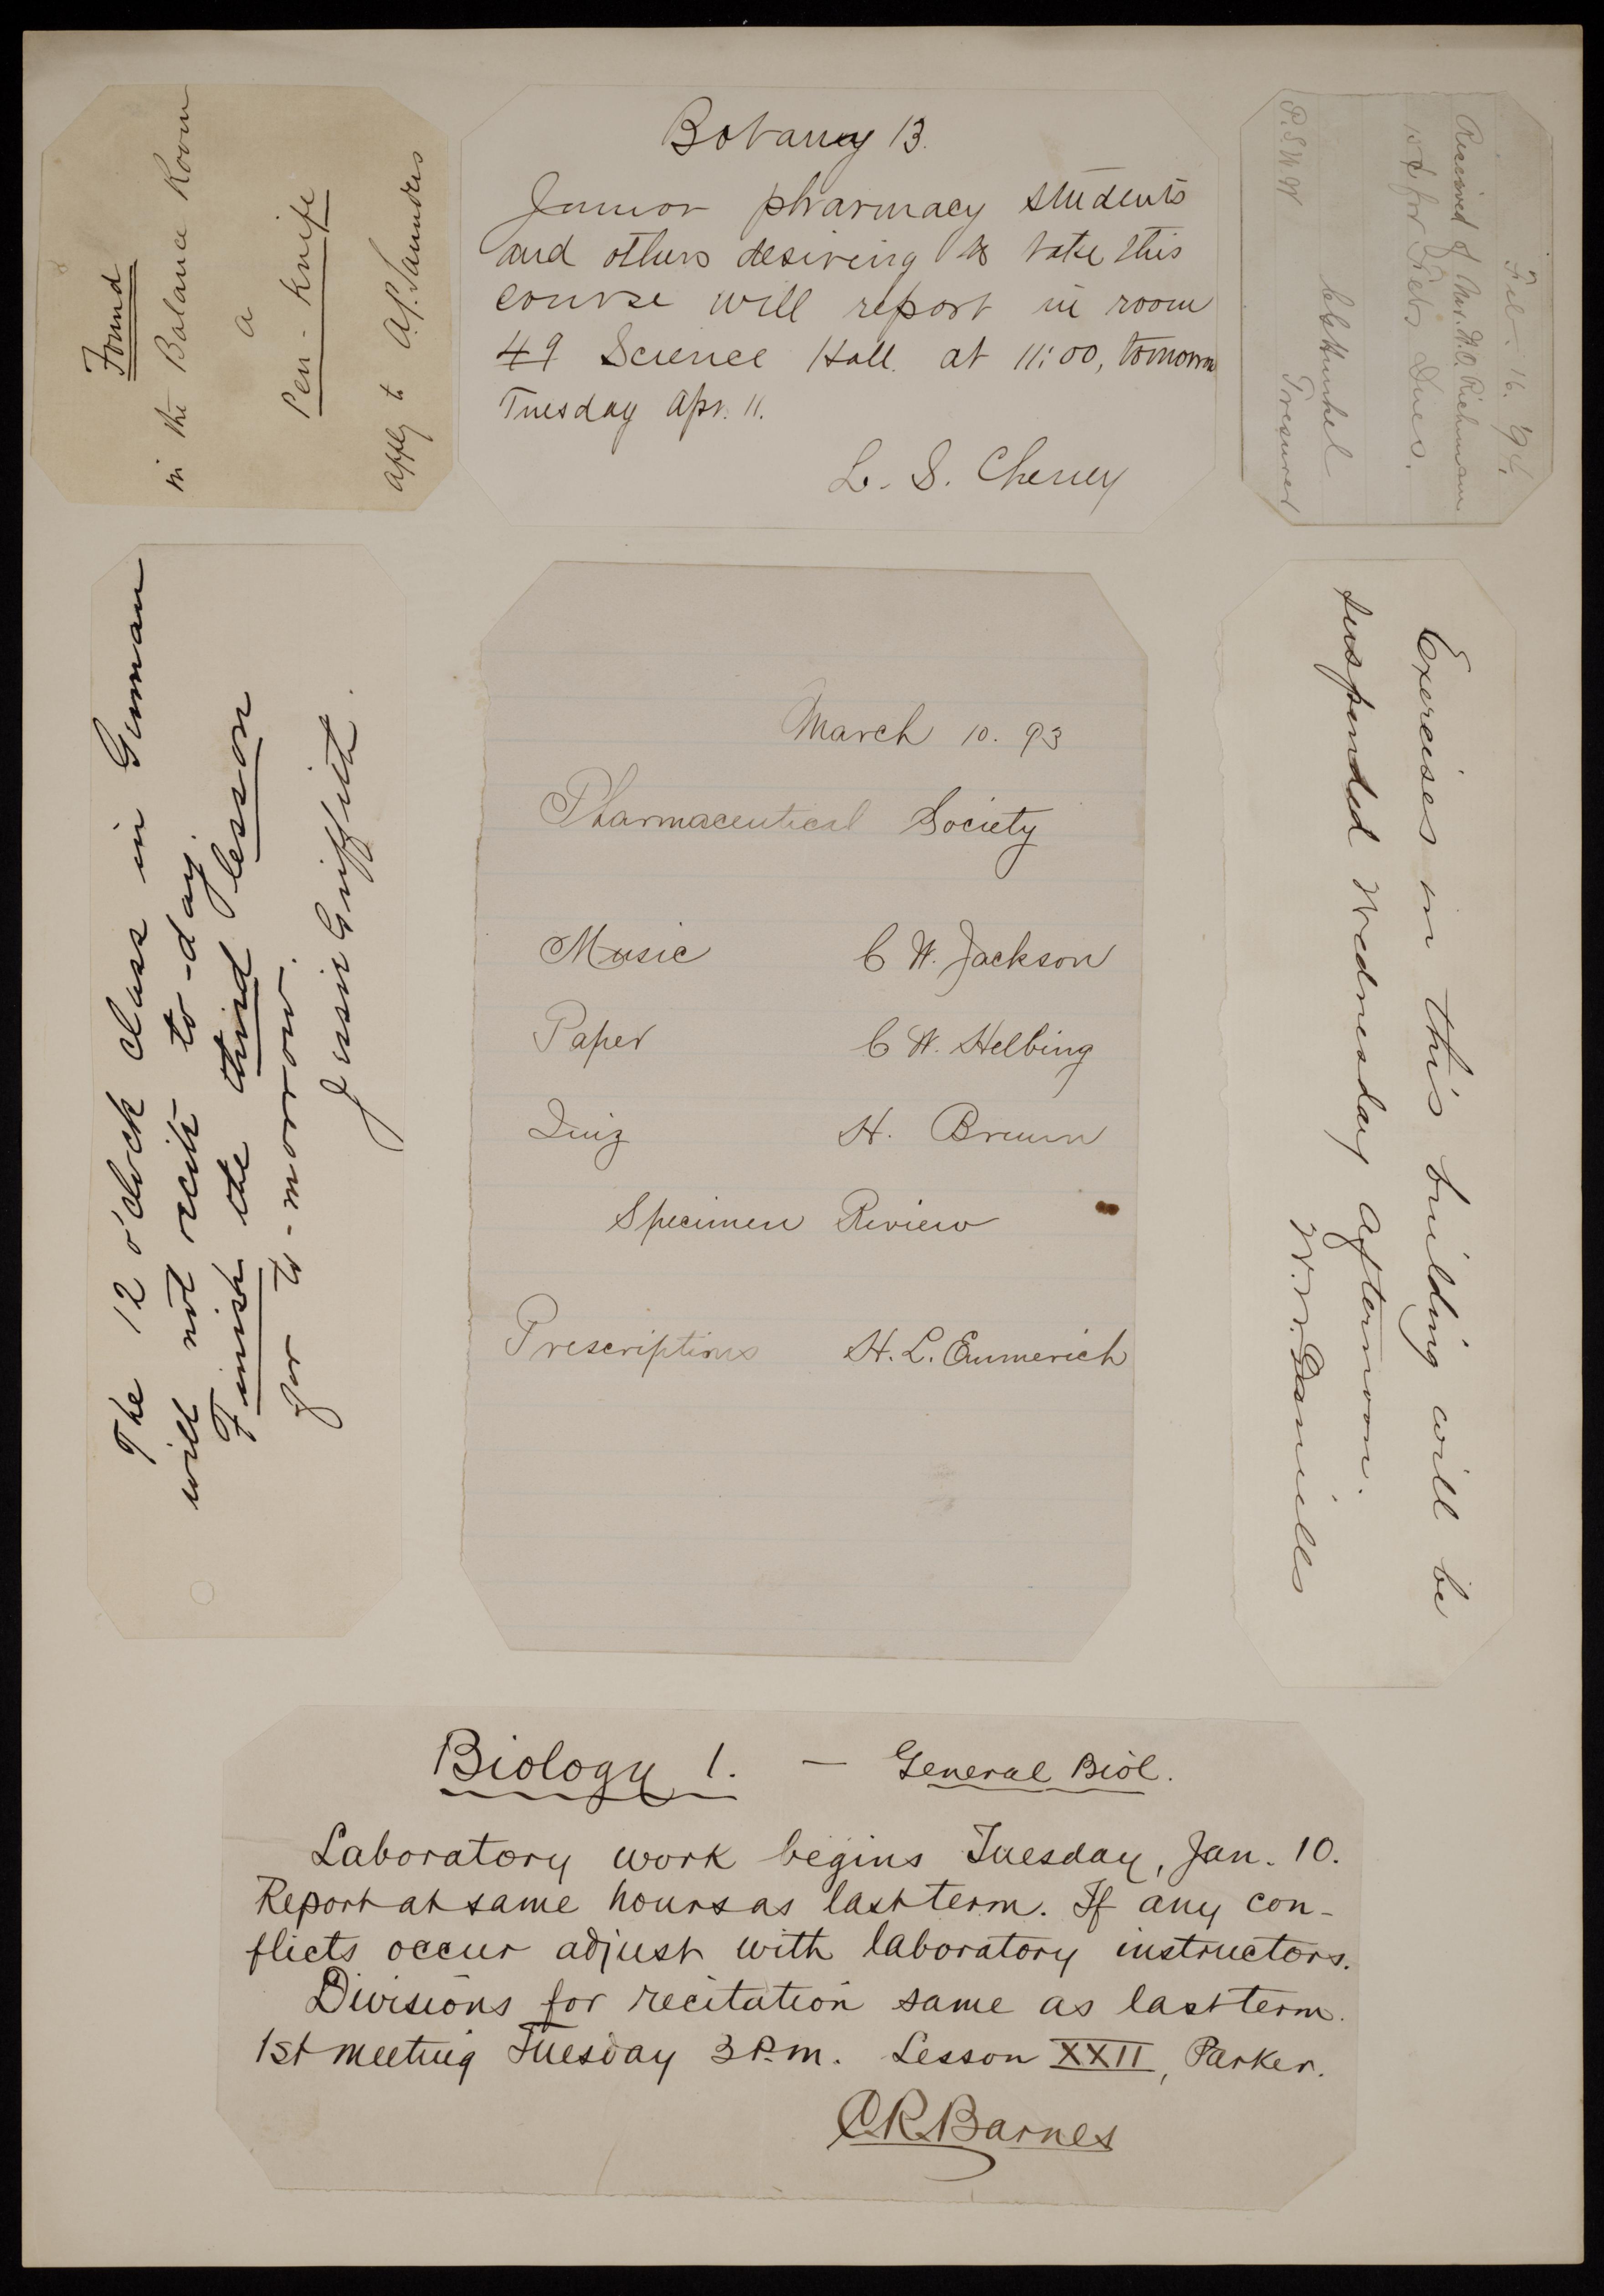 Found
in the Balance Room
a
Pen-knife
apply to A.P. Saunders
Botany 13.
Junior pharmacy students
and others desiring to take this
course will report in room
49 Science Hall. at 11:00, tomorrow
Tuesday Apr. 11.
L. S. Cheney
Feb. 16. '94.
Received of Mr. W. O. Richtmann
for Feb's Dues.
Treasurer
P.S.U.W
The 12 o'clock class in German
will not recite to-day.
Finish the third lesson
for to-morrow.
Jessie Griffith.
March 10. 93
Pharmaceutical Society
Music C W. Jackson
Paper C W. Helbing
Quiz H. Bruun
Specimen Review
Prescriptions H. L. Emmerich
Exercises in this building will be
suspended Wednesday afternoon.
W. W. Daniells
Biology 1. — General Biol.
Laboratory work begins Tuesday, Jan. 10.
Report at same hours as last term. If any con-
flicts occur adjust with laboratory instructors.
Divisions for recitation same as last term.
1st meeting Tuesday 3 P.m. Lesson XXII, Parker.
CRBarnes